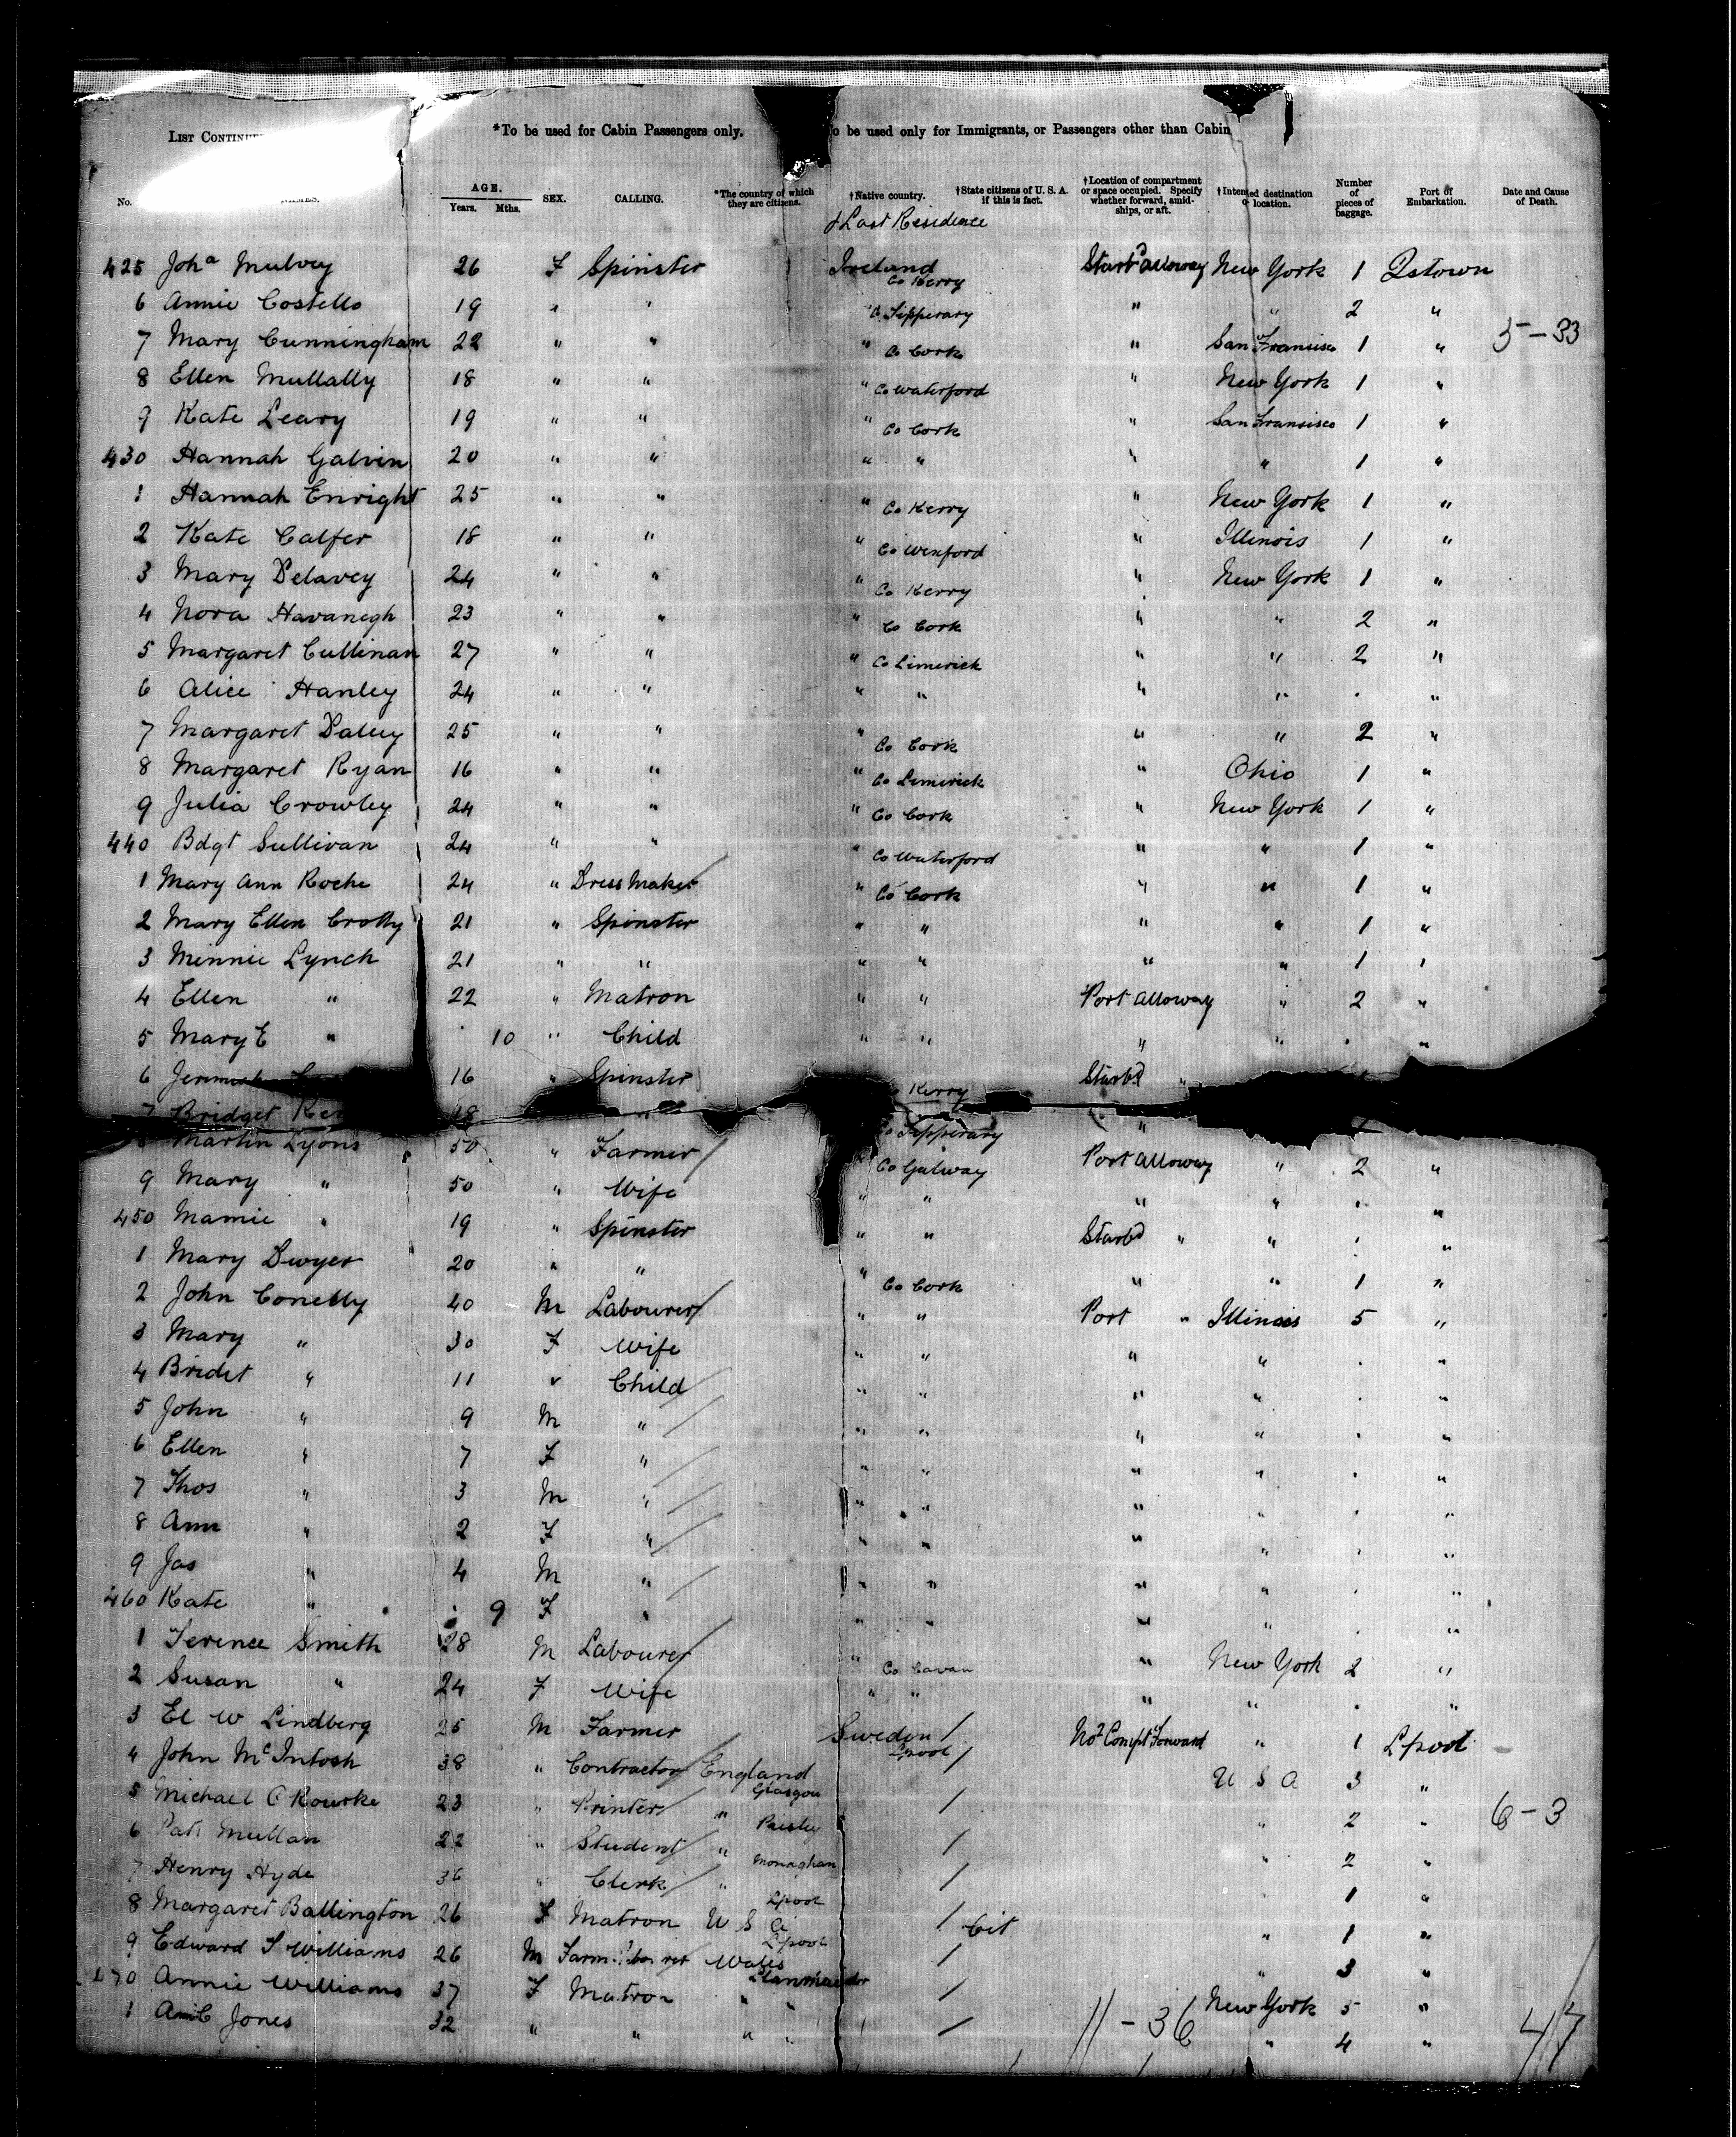 LIST CONTINU
*To be used for Cabin Passengers only.
o be used only for Immigrants, or Passengers other than Cabin
No. AGE. Years. Mths. SEX. CALLING. *The country of which they are citizens. †Native country. †State citizens of U. S. A. if this is fact. †Location of compartment or space occupied. Specify whether forward, amid-ships, or aft. †Intended destination or location. Number of pieces of baggage. Port of Embarkation. Date and Cause of Death.
& Last Residence
425 Joha Mulvey 26 F Spinster Ireland Co Kerry Starbd alloway New York 1 Qstown
6 Annie Costello 19 " " " Co Tipperary " " 2 "
7 Mary Cunningham 22 " " " Co Cork " San Fransisco 1 " 5-33
8 Ellen Mullally 18 " " " Co Waterford " New York 1 "
9 Kate Leary 19 " " " Co Cork " San Fransisco 1 "
430 Hannah Galvin 20 " " " " " " 1 "
1 Hannah Enright 25 " " " Co Kerry " New York 1 "
2 Kate Calfer 18 " " " Co Wexford " Illinois 1 "
3 Mary Delavey 24 " " " Co Kerry " New York 1 "
4 Nora Havanegh 23 " " " Co Cork " " 2 "
5 Margaret Cullinan 27 " " " Co Limerick " " 2 "
6 Alice Hanley 24 " " " " " " . "
7 Margaret Daley 25 " " " Co Cork " " 2 "
8 Margaret Ryan 16 " " " Co Limerick " Ohio 1 "
9 Julia Crowley 24 " " " Co Cork " New York 1 "
440 Bdgt Sullivan 24 " " " Co Waterford " " 1 "
1 Mary Ann Roche 24 " Dress Maker " Co Cork " " 1 "
2 Mary Ellen Crotty 21 " Spinster " " " " 1 "
3 Minnie Lynch 21 " " " " " " 1 "
4 Ellen " 22 " Matron " " Port alloway " 2 "
5 Mary E " . 10 " Child " " " " . "
6 16 " Spinster Kerry Starbd "
7 Bridget 18 Co Tipperary "
Martin Lyons 50 " Farmer " Co Galway Port alloway " 2 "
9 Mary " 50 " Wife " " " " . "
450 Mamie " 19 " Spinster " " Starbd " " . "
1 Mary Dwyer 20 " " " Co Cork " " 1 "
2 John Conelly 40 M Labourer " " Port " Illinois 5 "
3 Mary " 30 F Wife " " " " . "
4 Bridet " 11 " Child " " " " . "
5 John " 9 M " " " " " . "
6 Ellen " 7 F " " " " . "
7 Thos " 3 M " " " " " . "
8 Ann " 2 F " " " " " . "
9 Jas " 4 M " " " " " . "
460 Kate " . 9 F " " " " " . "
1 Terence Smith 28 M Labourer " Co Cavan " New York 2 "
2 Susan " 24 F Wife " " " " . "
3 El W Lindberg 25 M Farmer Sweden / No 2 Compt Forward " 1 Lpool
4 John McIntosh 38 " Contractor England Lpool / U S A 3 "
5 Michael O Rourke 23 " Printer " Glasgow / " 2 " 6-3
6 Pat Mullan 22 " Student " Paisley / " 2 "
7 Henry Hyde 36 " Clerk " Monaghan / " 1 "
8 Margaret Ballington 26 F Matron U S A Lpool / Cit " 1 "
9 Edward T Williams 26 M Farm Wales Lpool / " 3 "
470 Annie Williams 37 F Matron " " / New York 5 "
1 Jones 32 " " " " / 11-36 " 4 " 47